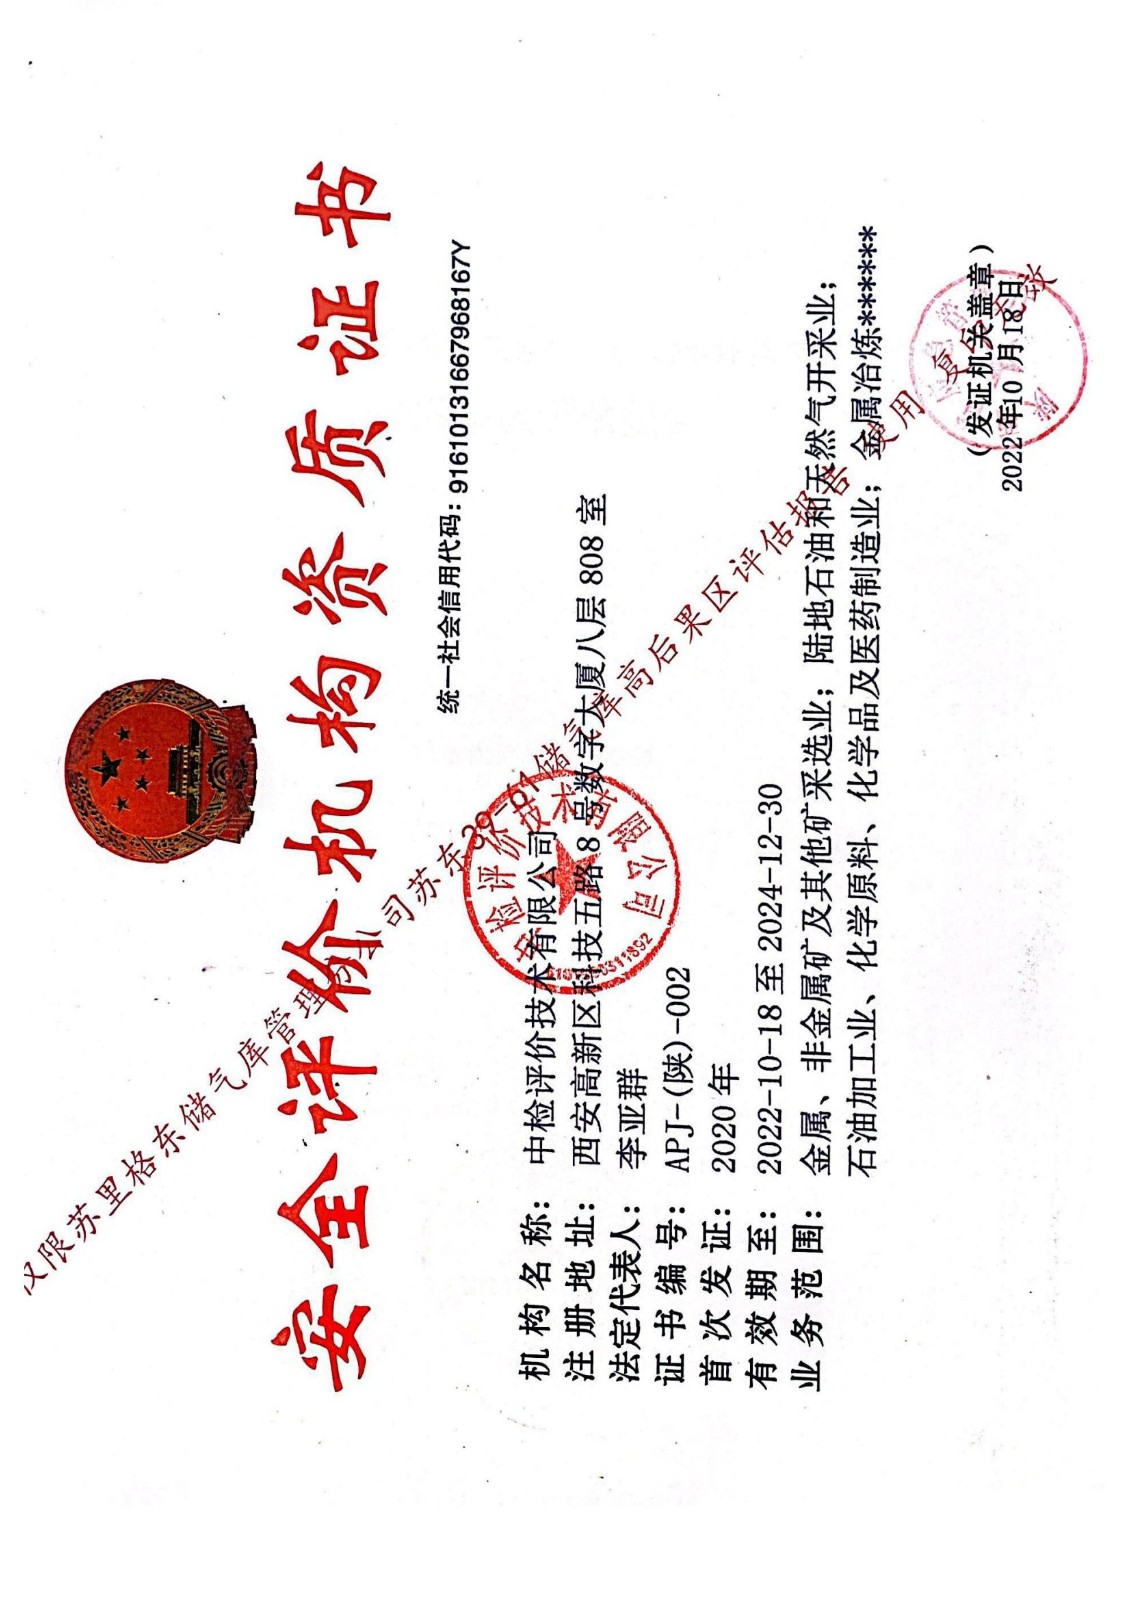 安全评价机构资质证书
统一社会信用代码：91610131667968167Y
机构名称：中检评价技术有限公司
注册地址：西安高新区科技五路8号数字大厦八层808室
法定代表人：李亚群
证书编号：APJ-(陕)-002
首次发证：2020年
有效期至：2022-10-18至2024-12-30
业务范围：金属、非金属矿及其他矿采选业；陆地石油和天然气开采业；
石油加工业、化学原料、化学品及医药制造业；金属冶炼******
（发证机关盖章）
2022年10月18日
仅限苏里格东储气库管理分公司苏东39-61储气库高后果区评估报告使用 复印无效
中检评价技术有限公司